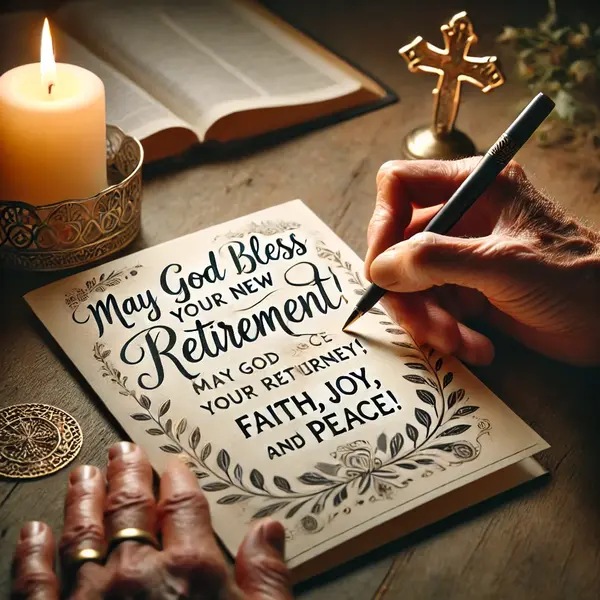 May God Bless
YOUR NEW
Retirement!
MAY GOD
YOUR
FAITH, JOY,
AND PEACE!